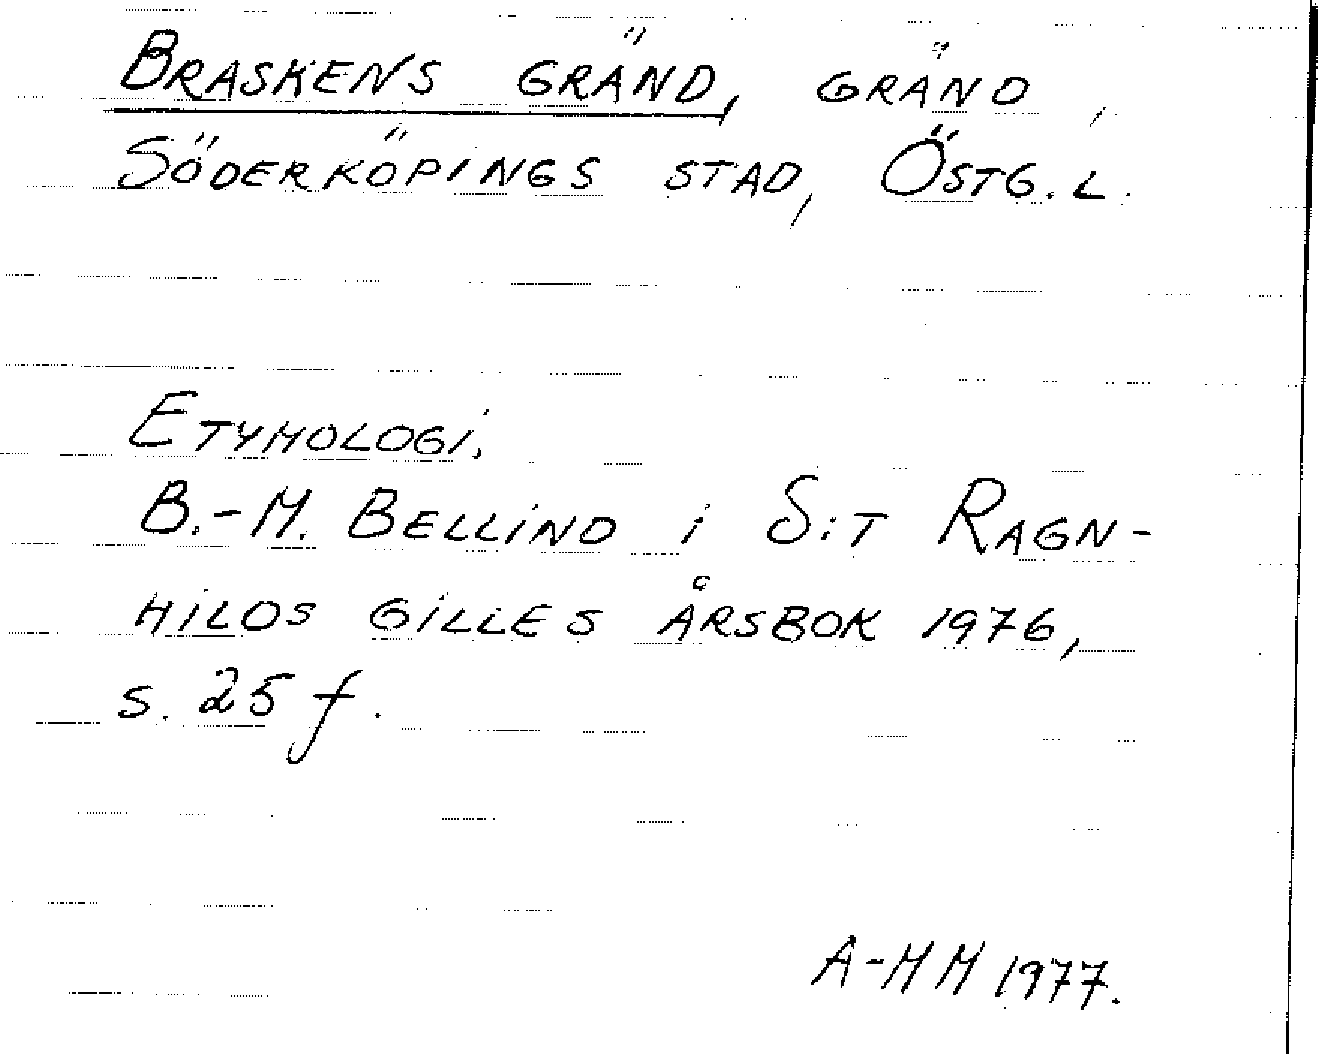 BRASKENS GRÄND, GRÄND,
SÖDERKÖPINGS STAD, ÖSTG.L.
ETYMOLOGI.
B.-M. BELLIND i S:T RAGN-
HILDS GILLES ÅRSBOK 1976,
s. 25 f.
A-MM 1977.